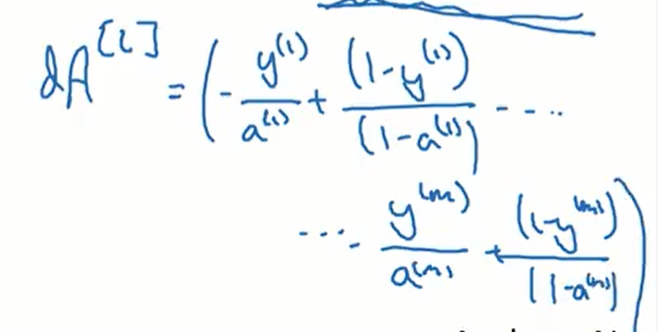 dA^[l] = ( - y^(1) / a^(1) + (1-y^(1)) / (1-a^(1)) ----
---- y^(m) / a^(m) + (1-y^(m)) / (1-a^(m)) )